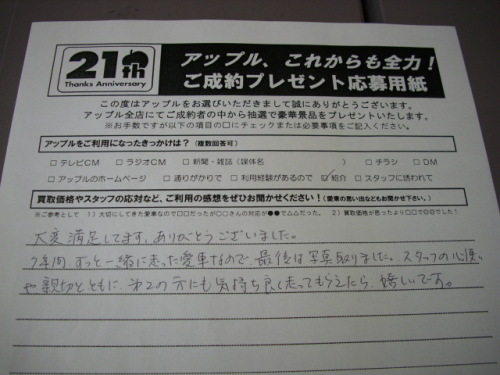 21th
Thanks Anniversary
アップル、これからも全力!
ご成約プレゼント応募用紙
この度はアップルをお選びいただきまして誠にありがとうございます。
アップル全店にてご成約者の中から抽選で豪華景品をプレゼントいたします。
※お手数ですが以下の項目の□にチェックまたは必要事項をご記入ください。
アップルをご利用になったきっかけは?(複数回答可)
□テレビCM □ラジオCM □新聞・雑誌(媒体名 ) □チラシ □DM
□アップルのホームページ □通りがかりで □利用経験があるので ☑紹介 □スタッフに誘われて
買取価格やスタッフの応対など、ご利用の感想をぜひお聞かせください!(愛車の思い出などもお聞かせ下さい。)
※ご参考として 1)大切にしてきた愛車なので□□だったが○○さんの対応が●●で△△だった。 2)買取価格が思ったより□□で◎◎でした!
大変満足してます。ありがとうございました。
7年間、ずっと一緒に走った愛車なので、最後は写真取りました。スタッフの心使い
や親切とともに、第2の方にも気持ち良く走ってもらえたら、嬉しいです。